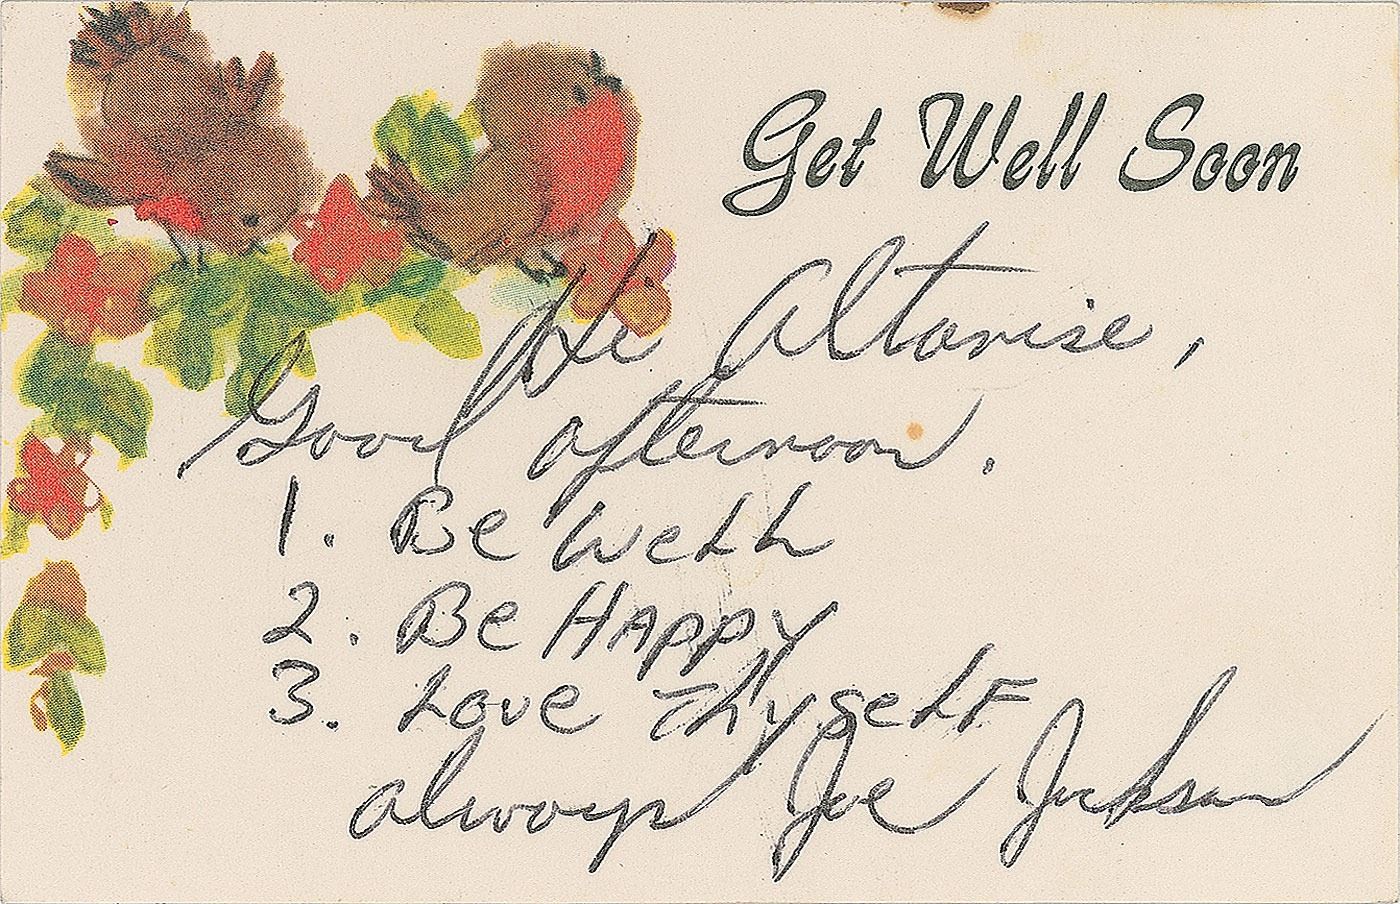 Get Well Soon
He Altovise,
Good afternoon.
1. Be Well
2. Be Happy
3. Love Thyself
always Joe Jackson